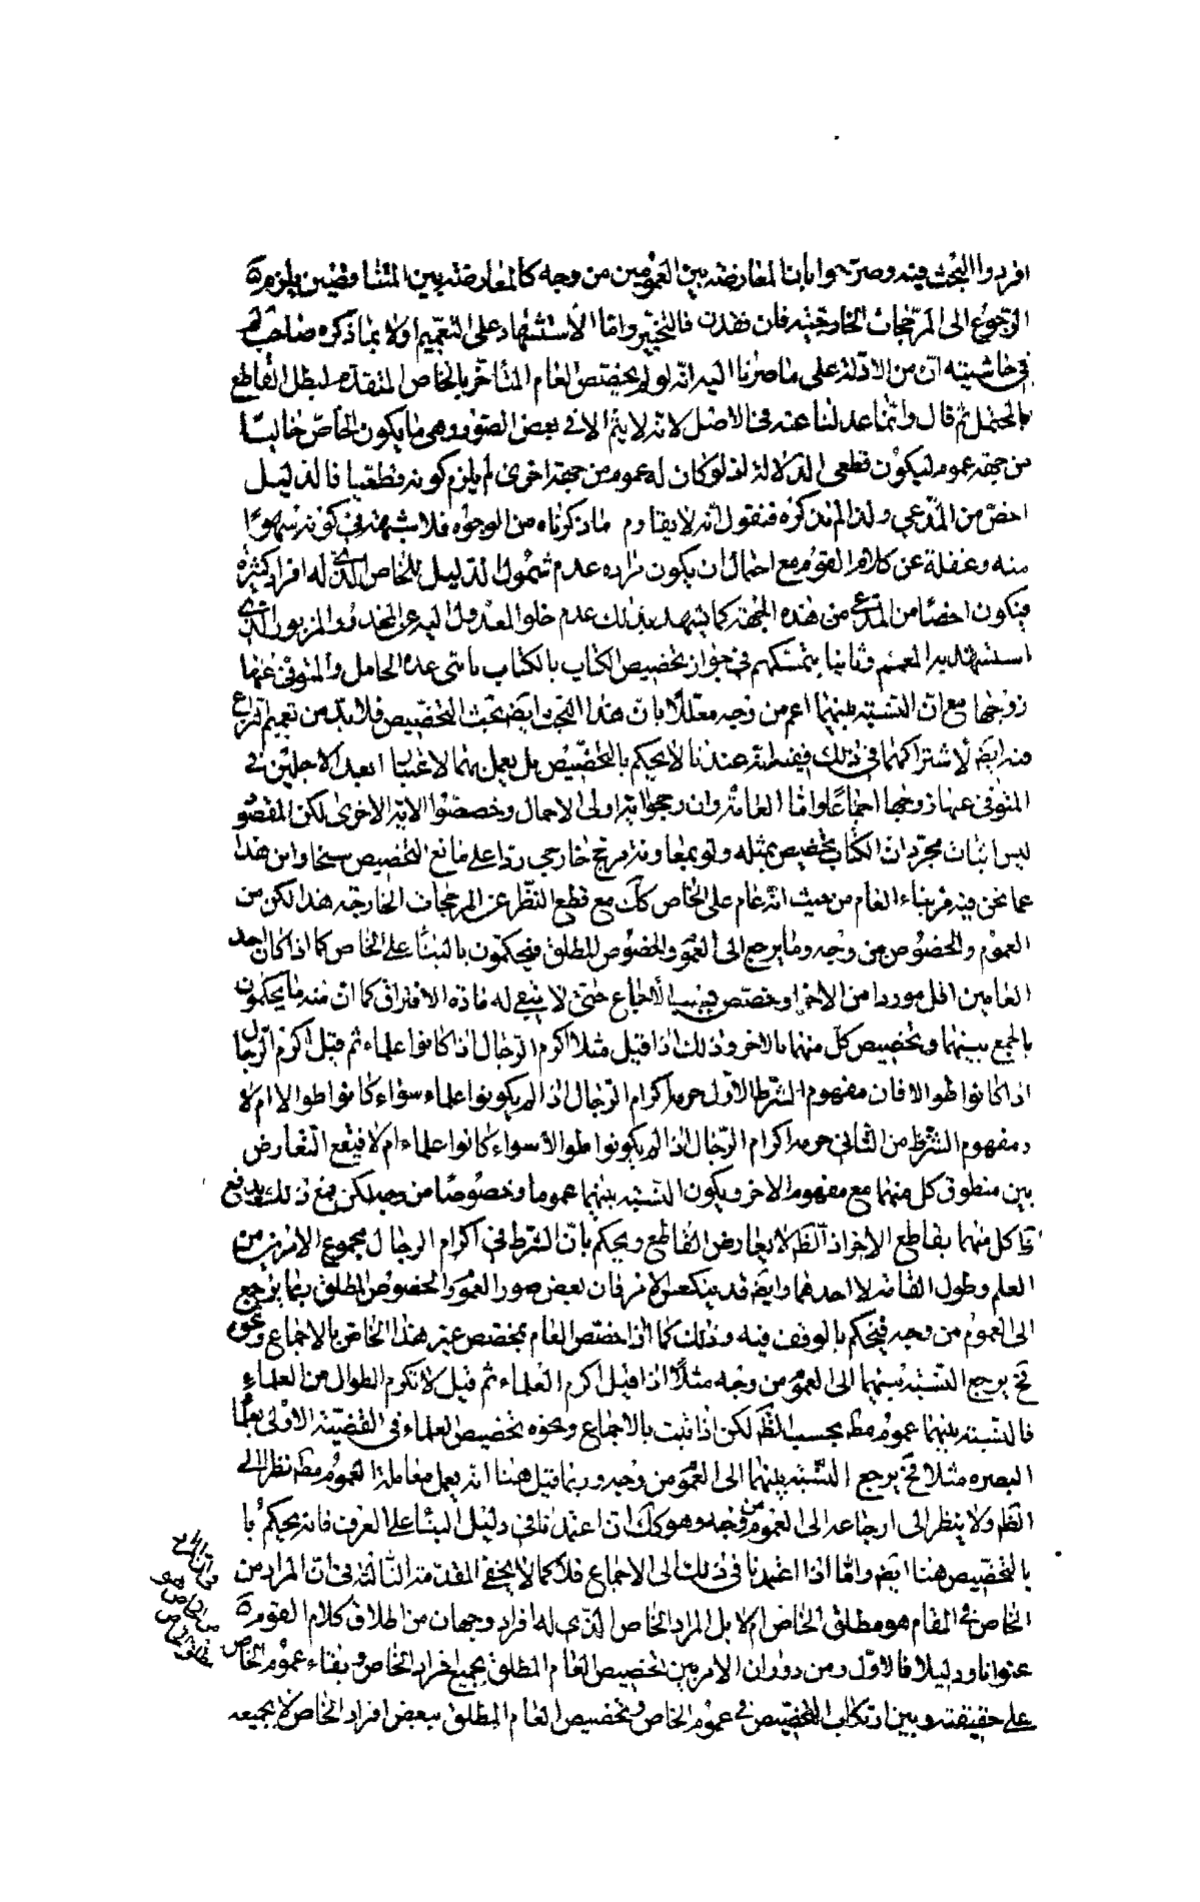 افردوا البحث فيه وصرحوا بان المعارضة بين العمومين من وجه كالمعارضة بين المتناقضين يلزم
الرجوع الى المرجحات الخارجية فان فقدت فالتخيير واما الاستشهاد على التعميم اولا بما ذكره صاحب لم
في حاشيته ان من الادلة على ما صرنا اليه انه لو لم يخصص العام المتأخر بالخاص المتقدم لبطل القاطع
بالمحتمل ثم قال وانما عدلنا عنه في الاصل لانه لا يتم الا في بعض الصور وهي ما يكون الخاص خاليا
من جهة عموم ليكون قطعي الدلالة اذ لو كان له عموم من جهة اخرى لم يلزم كونه قطعيا فالدليل
اخص من المدعي ولذا لم نذكره فنقول انه لا يقاوم ما ذكرناه من الوجوه فلا شبهة في كونه سهوا
منه وغفلة عن كلام القوم مع احتمال ان يكون مراده عدم شمول الدليل للخاص الذي له افراد كثيرة
فيكون اخصا من المدعي من هذه الجهة كما يشهد بذلك عدم خلو المعدول اليه عن المحذور المزبور الذي
استشهد به المعمم وثانيا بتمسكهم في جواز تخصيص الكتاب بالكتاب بايتي عدة الحامل والمتوفى عنها
زوجها مع ان النسبة بينهما اعم من وجه معللا بان هذا البحث ايضا بحث التخصيص فلا بد من تعميم النزاع
فيه ايضا لاشتراكهما في ذلك ففيه انه عندنا لا يحكم بالتخصيص بل يعمل بهما لاعتبار ابعد الاجلين في
المتوفى عنها زوجها اجماعا واما العامة وان رجحوا اية اولى الاحمال وخصصوا الاية الاخرى لكن المقصود
ليس اثبات مجرد ان الكتاب يخصص بمثله ولو بمعاونة مرجح خارجي ردا على مانع التخصيص سنخا واين هذا
عما نحن فيه من بناء العام من حيث انه عام على الخاص كك مع قطع النظر عن المرجحات الخارجة هذا لكن من
العموم والخصوص من وجه وما يرجع الى العموم والخصوص المطلق فيحكمون بالبناء على الخاص كما اذا كان احد
العامين اقل موردا من الاخر او خصص بالاجماع حتى لا يبقى له مادة الافتراق كما ان منه ما يحكمون
بالجمع بينهما وتخصيص كل منهما بالاخر وذلك اذا قيل مثلا اكرم الرجال ان كانوا علماء ثم قيل اكرم الرجال
اذا كانوا طوالا فان مفهوم الشرط الاول حرمة اكرام الرجال اذا لم يكونوا علماء سواء كانوا طوالا ام لا
ومفهوم الشرط من الثاني حرمة اكرام الرجال اذا لم يكونوا طوالا سواء كانوا علماء ام لا فيقع التعارض
بين منطوق كل منهما مع مفهوم الاخر ويكون النسبة بينهما عموما وخصوصا من وجه لكن مع ذلك يدفع
كل منهما بقاطع الاخر اذ الظ لا يعارض القاطع ويحكم بان الشرط في اكرام الرجال مجموع الامرين من
العلم وطول القامة لا احدهما وايضا قد ينعكس الامر فان بعض صور العموم والخصوص المطلق ربما يرجع
الى العموم من وجه فيحكم بالوقف فيه وذلك كما اذا خصص العام بمخصص غير هذا الخاص بالاجماع ونحوه
فح يرجع النسبة بينهما الى العموم من وجه مثلا اذا قيل اكرم العلماء ثم قيل لا تكرم الطوال من العلماء
فالنسبة بينهما عموم مط بحسب الظ لكن اذا ثبت بالاجماع ونحوه تخصيص العلماء في القضية الاولى بعلماء
البصرة مثلا فح يرجع النسبة بينهما الى العموم من وجه وربما قيل هنا انه يعمل معاملة العموم مط نظرا الى
الظ ولا ينظر الى ارجاعه الى العموم من وجه وهو كك ان اعتمدنا في دليل البناء على العرف فانه يحكم با
بالتخصيص هنا ايضا واما اذا اعتمدنا في ذلك الى الاجماع فلا كما لا يخفى المقدمة الثالثة في ان المراد من
الخاص في المقام هو مطلق الخاص ام لا بل المراد الخاص الذي له افراد وجهان من اطلاق كلام القوم
عنوانا ودليلا فالاول ومن دوران الامر بين تخصيص العام المطلق بجميع افراد الخاص وبقاء عموم الخاص
على حقيقته وبين ارتكاب التخصيص في عموم الخاص وتخصيص العام المطلق ببعض افراد الخاص لا بجميعه